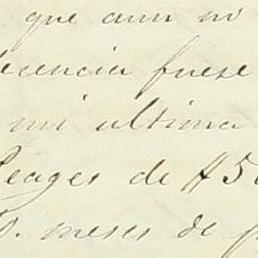 que aun no
ecencia fuese
mi ultima
Peages de $5
meses de